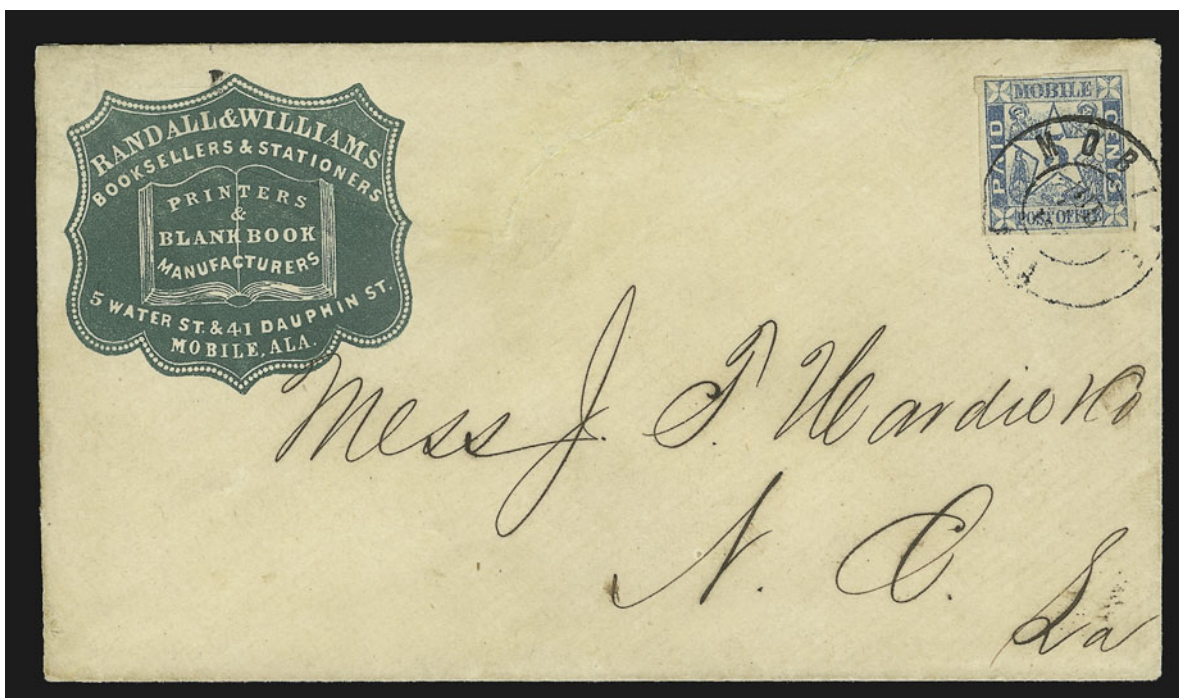 RANDALL & WILLIAMS
BOOKSELLERS & STATIONERS
PRINTERS
&
BLANK BOOK
MANUFACTURERS
5 WATER ST. & 41 DAUPHIN ST.
MOBILE, ALA.
MOBILE
PAID
5
CENTS
POST OFFICE
MOBI
Mess J. T. Hardie & Co
N. O.
La